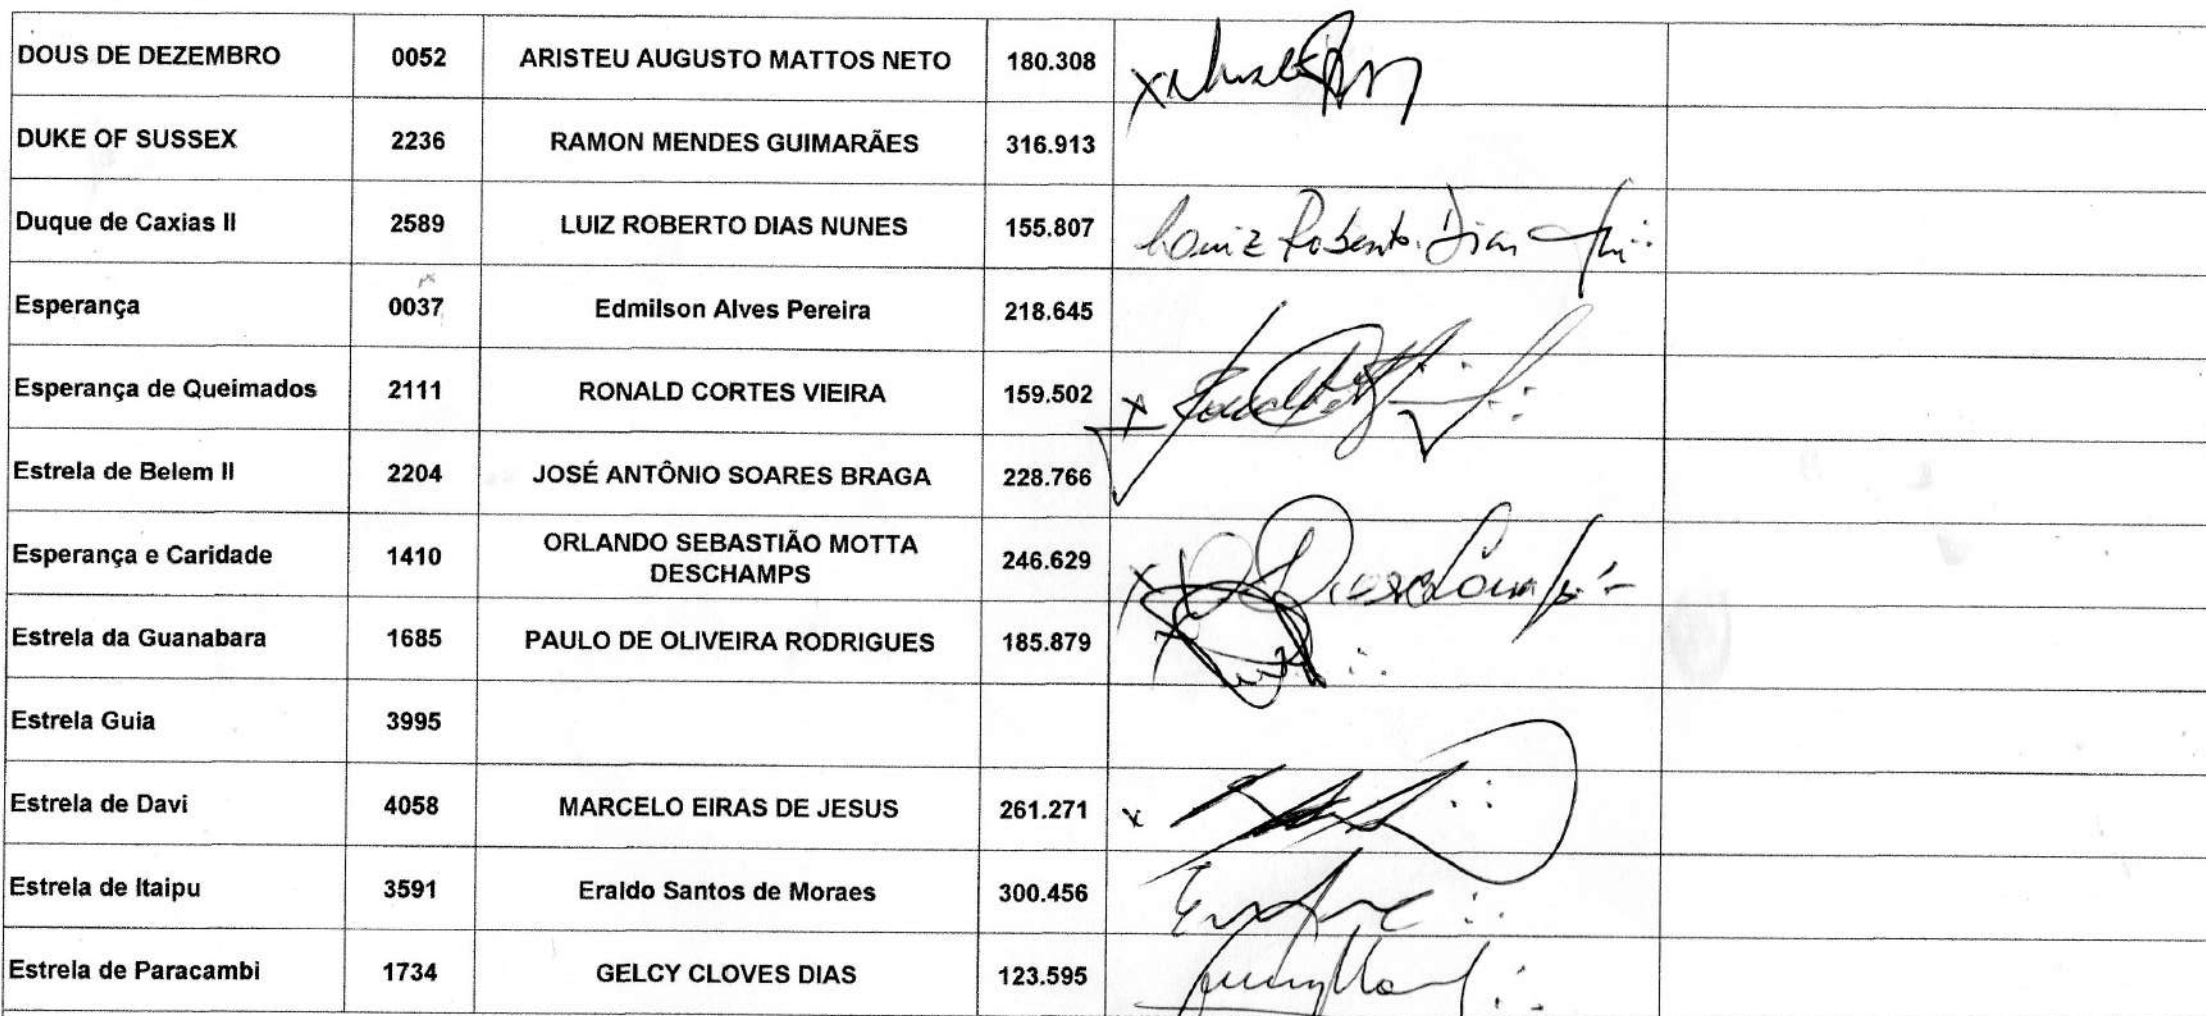 DOUS DE DEZEMBRO 0052 ARISTEU AUGUSTO MATTOS NETO 180.308
DUKE OF SUSSEX 2236 RAMON MENDES GUIMARÃES 316.913
Duque de Caxias II 2589 LUIZ ROBERTO DIAS NUNES 155.807 Roberto Dias
Esperança 0037 Edmilson Alves Pereira 218.645
Esperança de Queimados 2111 RONALD CORTES VIEIRA 159.502
Estrela de Belem II 2204 JOSÉ ANTÔNIO SOARES BRAGA 228.766
Esperança e Caridade 1410 ORLANDO SEBASTIÃO MOTTA
DESCHAMPS 246.629
Estrela da Guanabara 1685 PAULO DE OLIVEIRA RODRIGUES 185.879
Estrela Guia 3995
Estrela de Davi 4058 MARCELO EIRAS DE JESUS 261.271
Estrela de Itaipu 3591 Eraldo Santos de Moraes 300.456
Estrela de Paracambi 1734 GELCY CLOVES DIAS 123.595